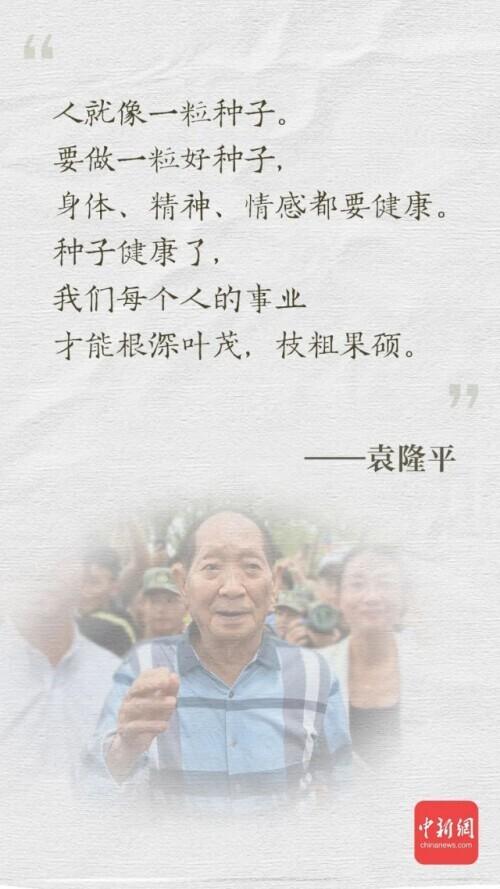 “
人就像一粒种子。
要做一粒好种子，
身体、精神、情感都要健康。
种子健康了，
我们每个人的事业
才能根深叶茂，枝粗果硕。
”
——袁隆平
中新網
chinanews.com